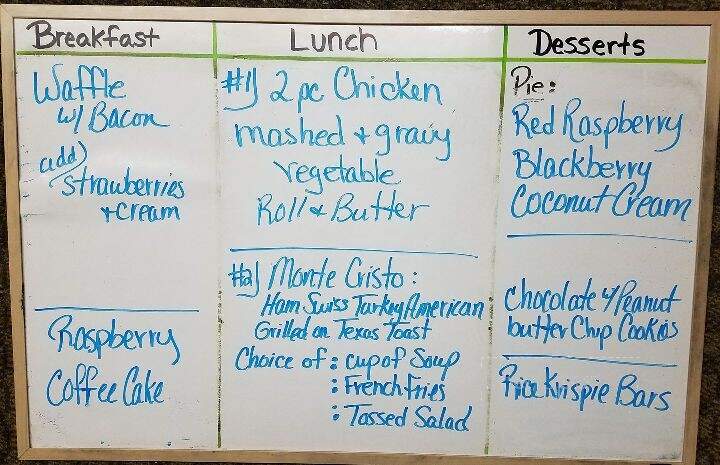 Breakfast
Waffle
w/ Bacon
add)
Strawberries
+ cream
Raspberry
Coffee Cake
Lunch
#1) 2 pc Chicken
mashed + gravy
vegetable
Roll & Butter
#2) Monte Cristo:
Ham Swiss Turkey American
Grilled on Texas Toast
Choice of: cup of Soup
: French fries
: Tossed Salad
Desserts
Pie:
Red Raspberry
Blackberry
Coconut Cream
Chocolate w/ Peanut
butter Chip Cookies
Rice Krispie Bars